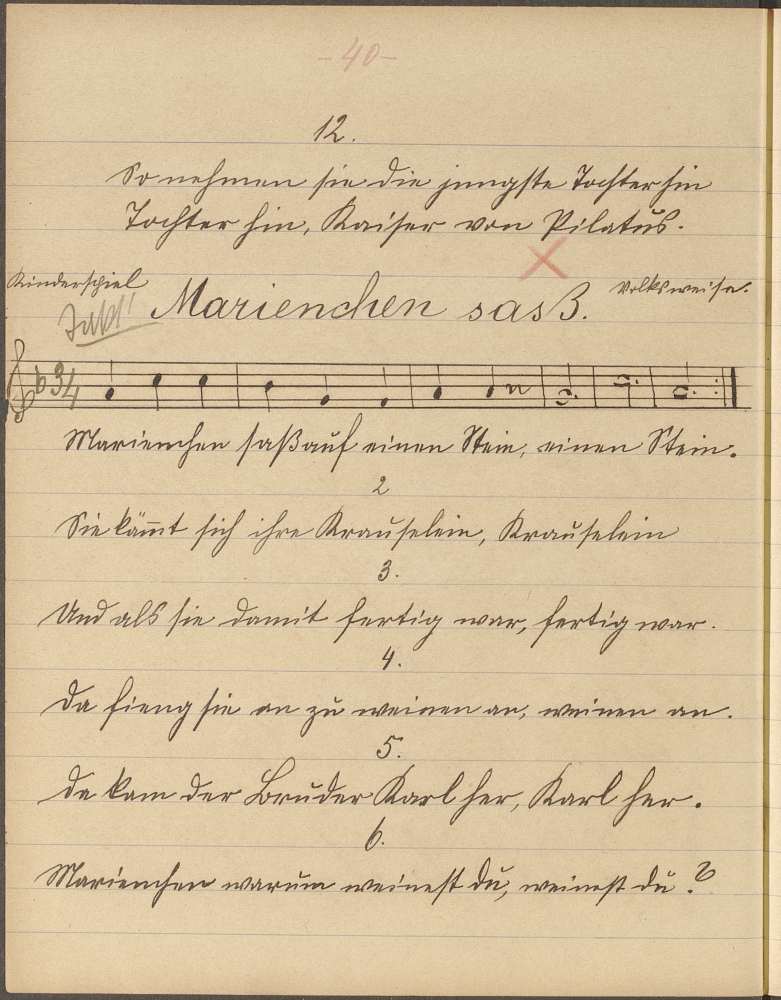 -40-
12.
So nehmen sie die jüngste Tochter hin
Tochter hin, Kaiser von Pilatus.
Kinderspiel
Volksweise.
Marienchen sasß.
3/4
Marienchen saß auf einen Stein, einen Stein.
2
Sie käm̄t sich ihre Krauselein, Krauselein
3.
Und als sie damit fertig war, fertig war.
4.
Da fieng sie an zu weinen an, weinen an.
5.
Da kam der Bruder Karl her, Karl her.
6.
Marienchen warum weinest du, weinest du?